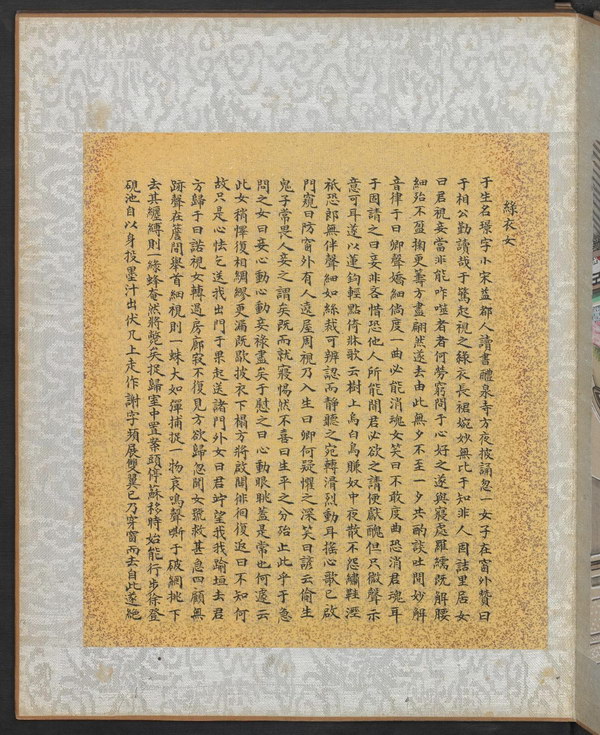 綠衣女
于生名璟字小宋益都人讀書醴泉寺方夜披誦忽一女子在窗外贊曰
于相公勤讀哉于驚起視之綠衣長裙婉妙無比于知非人固詰里居女
曰君視妾當非能咋噬者者何勞窮問于心好之遂與寢處羅襦既解腰
細殆不盈掬更籌方盡翩然遂去由此無夕不至一夕共酌談吐間妙解
音律于曰卿聲嬌細倘度一曲必能消魂女笑曰不敢度曲恐消君魂耳
于固請之曰妾非吝惜恐他人所能聞君必欲之請便獻醜但只微聲示
意可耳遂以蓮鉤輕點倚牀歌云樹上烏臼鳥賺奴中夜散不怨繡鞋溼
祇恐郎無伴聲細如絲裁可辨認而靜聽之宛轉滑烈動耳搖心歌已啟
門窺曰防窗外有人遶屋周視乃入生曰卿何疑懼之深笑曰諺云偷生
鬼子常畏人妾之謂矣既而就寢惕然不喜曰生平之分殆止此乎于急
問之女曰妾心動心動妾祿盡矣于慰之曰心動眼眺蓋是常也何遽云
此女稍懌復相綢繆更漏既歇披衣下榻方將啟關徘徊復返曰不知何
故只是心怯乞送我出門于果起送諸門外女曰君竚望我我踰垣去君
方歸于曰諾視女轉過房廊寂不復見方欲歸忽聞女號救甚急四顧無
跡聲在簷間舉首細視則一蛛大如彈捕捉一物哀鳴聲嘶于破網挑下
去其纏縛則一綠蜂奄然將斃矣捉歸室中置案頭停蘇移時始能行步徐登
硯池自以身投墨汁出伏几上走作謝字頻展雙翼已乃穿窗而去自此遂絕